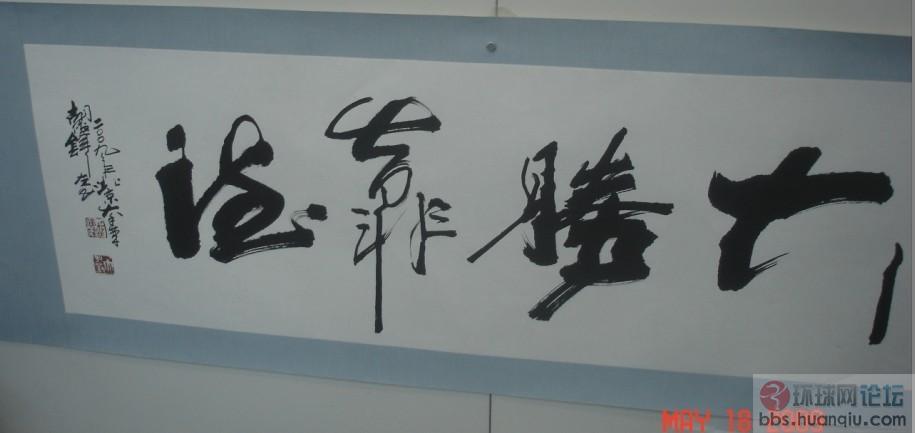 大勝靠德
二〇〇九年於北京大學
环球网论坛
bbs.huanqiu.com
MAY 18 2009